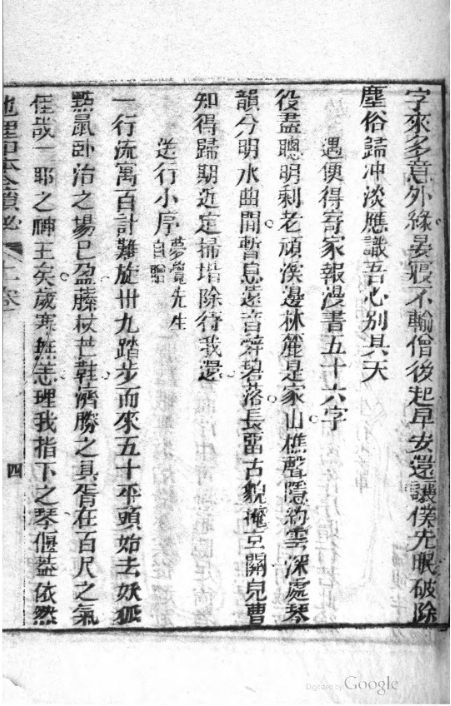 字來多意外緣晏寢不輸僧後起早安還讓僕先眠破除
塵俗歸冲淡應識吾心別具天
遇便得寄家報漫書五十六字
役盡聰明剩老頑溪邊林麓是家山樵聲隱約雲深處琴
韻分明水曲間暫息遠音辭碧落長留古貌掩立關兒曹
知得歸期近定掃堦除待我還
送行小序夢覺先生自贈
一行流寓百計難旋卅九踏步而來五十平頭始去妖狐
點鼠卧治之場已盈藤杖芒鞋濟勝之具胥在百尺之氣
佳哉一耶之神王矣歲寒無恙理我指下之琴偃蓋依然
地理
四
Digitized by Google